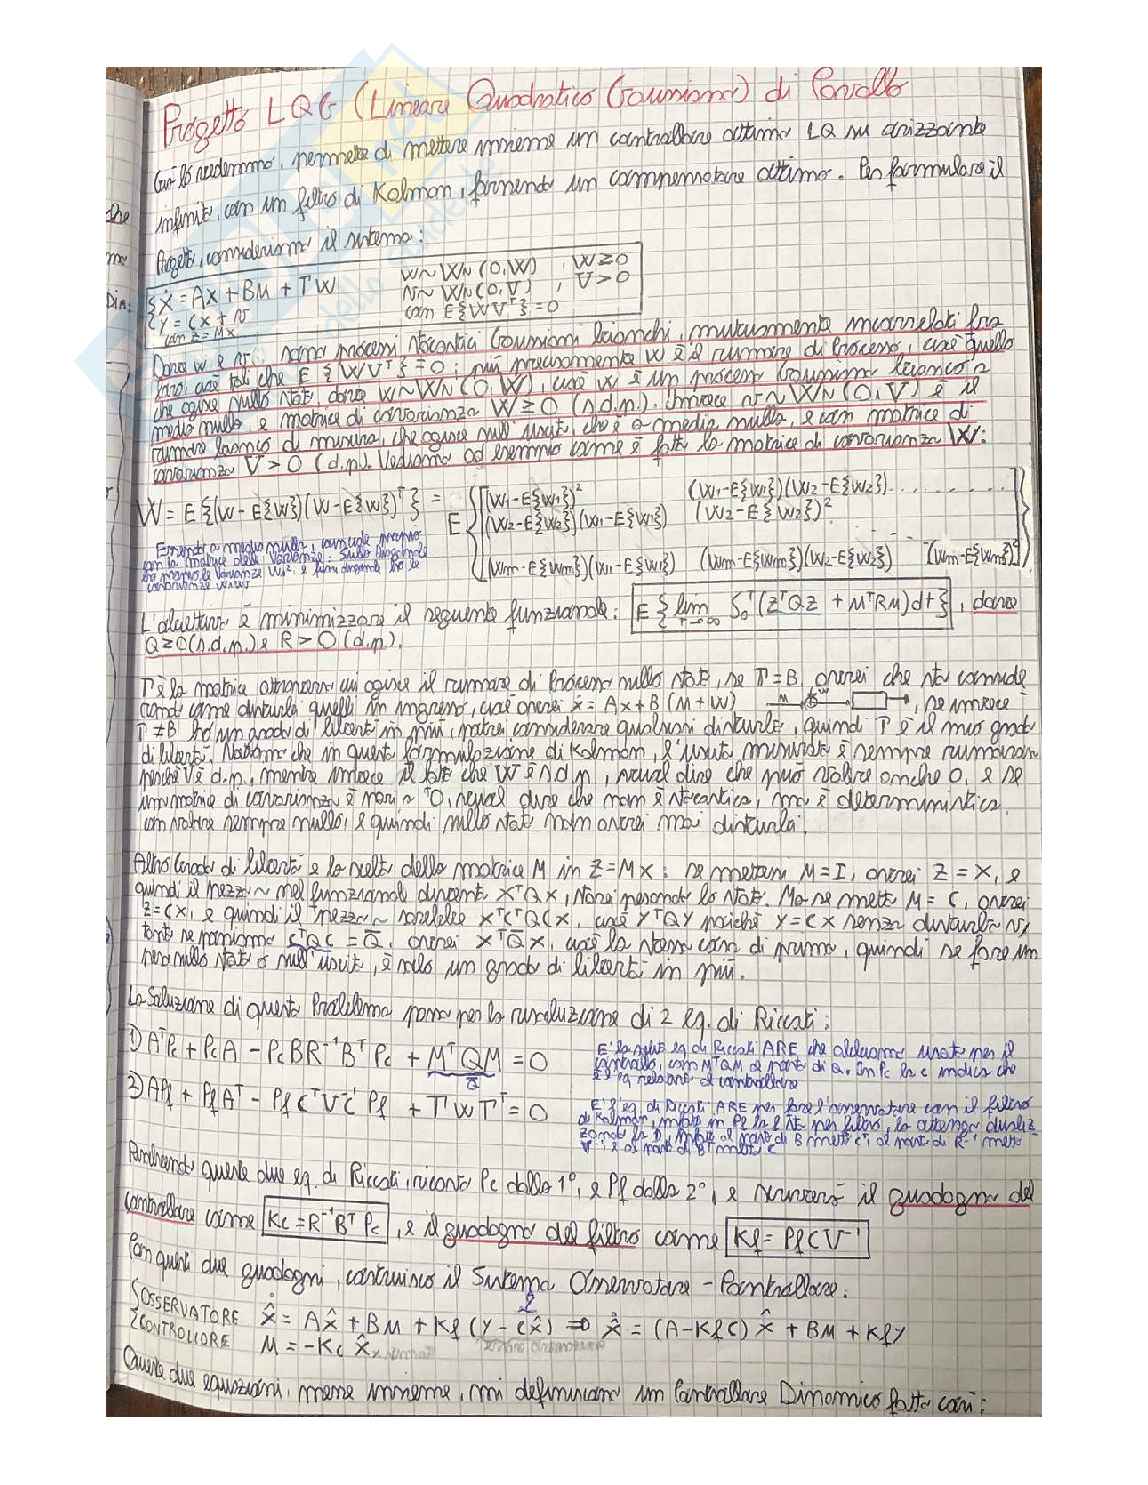 Progetto LQG (Lineare Quadratico Gaussiano) di Controllo
Così lo vedremmo, permette di mettere insieme un controllore ottimo LQ su orizzonte
infinito, con un filtro di Kalman, fornendo un compensatore ottimo. Per formulare il
Progetto, consideriamo il sistema:
{ẋ = Ax + Bu + Γw    w~WN(0,W) , W≥0
{y = Cx + v    v~WN(0,V) , V>0
con z=Mx    con E{wvᵀ}=0
Dove w e v, sono processi stocastici Gaussiani bianchi, mutuamente incorrelati fra
loro, cioè tali che E{wvᵀ}=0; più precisamente w è il rumore di Processo, cioè quello
che agisce sullo stato, dove w~WN(0,W), cioè w è un processo Gaussiano bianco a
media nulla e matrice di covarianza W≥0 (s.d.p.). Invece v~WN(0,V) è il
rumore bianco di misura, che agisce sull'uscita, che è a media nulla, e con matrice di
covarianza V>0 (d.p.). Vediamo ad esempio come è fatta la matrice di covarianza W:
W = E{(w-E{w})(w-E{w})ᵀ} = E{[(w₁-E{w₁})² (w₁-E{w₁})(w₂-E{w₂}) ........
(w₂-E{w₂})(w₁-E{w₁}) (w₂-E{w₂})² .
(wₘ-E{wₘ})(w₁-E{w₁}) (wₘ-E{wₘ})(w₂-E{w₂}) (wₘ-E{wₘ})²]}
Essendo a media nulla, coincide
con la matrice delle Varianze. Sulla diagonale
ho le varianze
L'obiettivo è minimizzare il seguente funzionale: E{lim T→∞ ∫₀ᵀ(zᵀQz + uᵀRu)dt}, dove
Q≥0(s.d.p.) e R>0 (d.p.).
Γ è la matrice attraverso cui agisce il rumore di Processo sullo stato, se Γ=B, avrei che sto considerando
come disturbi quelli in ingresso, cioè avrei ẋ = Ax+B(u+w) , se invece
Γ≠B ho un grado di libertà in più, potrei considerare qualsiasi disturbo, quindi Γ è il mio grado
di libertà. Notiamo che in questa formulazione di Kalman, l'uscita misurata è sempre rumorosa
poiché V è d.p., mentre invece il fatto che W è s.d.p., vuol dire che può valere anche 0, e se
una matrice di covarianza è pari a 0, vuol dire che non è stocastica, ma è deterministica
con valore sempre nullo, e quindi sullo stato non avrei mai disturbi.
Altro Grado di libertà è la scelta della matrice M in z=Mx: se mettessi M=I, avrei z=x, e
quindi il pezzo nel funzionale diventa xᵀQx, starei pesando lo stato. Ma se metto M=C, avrei
z=Cx, e quindi il pezzo sarebbe xᵀCᵀQCx, cioè yᵀQy poiché y=Cx senza disturbo v;
tanto se poniamo CᵀQC=Q̄, avrei xᵀQ̄x, cioè la stessa cosa di prima, quindi se fare un
peso sullo stato o sull'uscita, è solo un grado di libertà in più.
La Soluzione di questo Problema passa per la risoluzione di 2 eq. di Riccati:
1) AᵀPc + PcA - PcBR⁻¹BᵀPc + MᵀQM = 0
Q̄
È la solita eq. di Riccati ARE che abbiamo usato per il
controllo, con MᵀQM al posto di Q. In Pc la c indica che
2) APf + PfAᵀ - PfCᵀV⁻¹CPf + ΓWΓᵀ = 0
È l'eq. di Riccati ARE per fare l'osservatore con il filtro
di Kalman, infatti in Pf la f sta per filtro, la ottengo dualiz-
zando la 1), infatti al posto di B metto Cᵀ, al posto di R⁻¹ metto
V⁻¹ e al posto di Bᵀ metto C
Risolvendo queste due eq. di Riccati, ricavo Pc dalla 1°, e Pf dalla 2°, e scriverò il guadagno del
controllore come Kc=R⁻¹BᵀPc , e il guadagno del filtro come Kf=PfCV⁻¹
Con questi due guadagni, costruisco il Sistema Osservatore-Controllore:
{OSSERVATORE x̂̇ = Ax̂ + Bu + Kf(y-Cx̂) ⇒ x̂̇ = (A-KfC)x̂ + Bu + Kfy
{CONTROLLORE u = -Kc x̂
Queste due equazioni, messe insieme, mi definiscono un Controllore Dinamico fatto così: